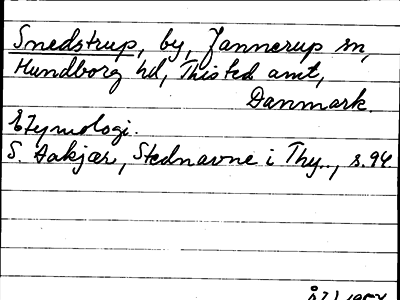 Snedstrup, by, Jannerup sn,
Hundborg hd, Thisted amt,
Danmark.
Etymologi.
S. Aakjær, Stednavne i Thy.., s. 94